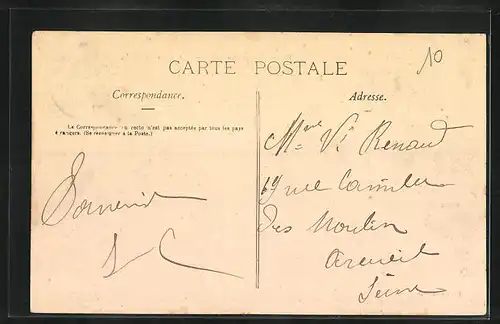 10
CARTE POSTALE
Correspondance.
Adresse.
La Correspondance au recto n'est pas acceptée par tous les pays
étrangers. (Se renseigner à la Poste.)
Souvenir
Mme Ve Renaud
rue Camille
Des Moulin
Arcueil
Seine